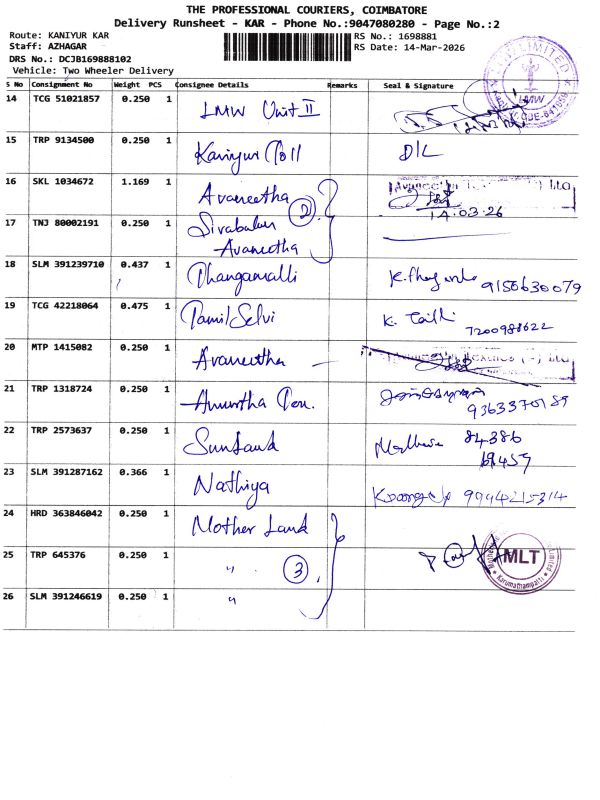 THE PROFESSIONAL COURIERS, COIMBATORE
Delivery Runsheet - KAR - Phone No.:9047080280 - Page No.:2
Route: KANIYUR KAR
RS No.: 1698881
Staff: AZHAGAR
RS Date: 14-Mar-2026
DRS No.: DCJB169888102
Vehicle: Two Wheeler Delivery
S No Consignment No Weight PCS Consignee Details Remarks Seal & Signature
14 TCG 51021857 0.250 1 LMW Unit II
LMW
15 TRP 9134500 0.250 1 Kaniyur Toll D/L
16 SKL 1034672 1.169 1 Avaneetha
14-03-26
17 TNJ 80002191 0.250 1 Sivabalan 2
Avaneetha
18 SLM 391239710 0.437 1 Thangamalli 9150630079
19 TCG 42218064 0.475 1 Tamil Selvi K. 7200988622
20 MTP 1415082 0.250 1 Avaneetha
21 TRP 1318724 0.250 1 9363370189
22 TRP 2573637 0.250 1 Sunland 84386
23 SLM 391287162 0.366 1 Nathiya 9994215314
24 HRD 363846042 0.250 1 Mother Land
25 TRP 645376 0.250 1 " 3 MLT
Karumathampatti
26 SLM 391246619 0.250 1 "